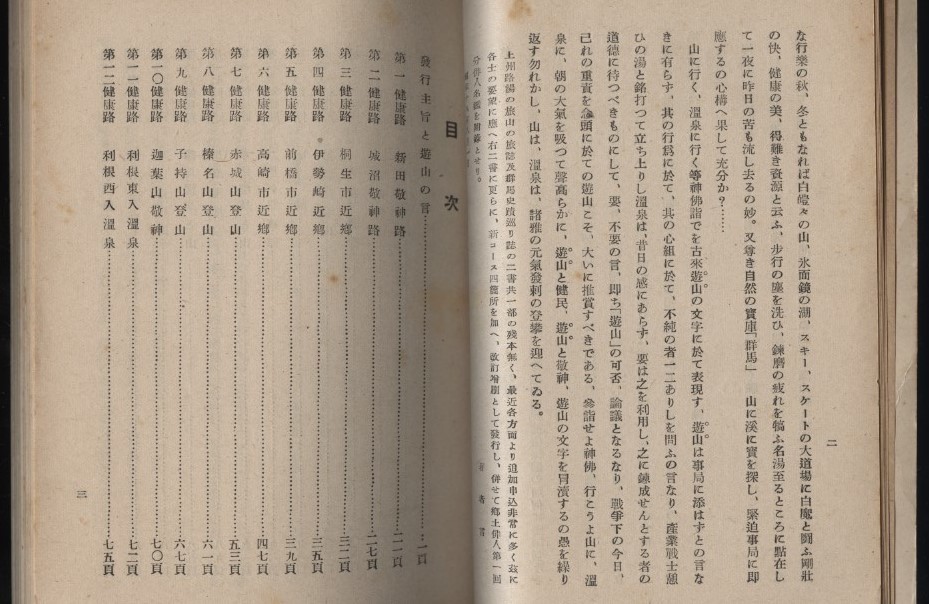 な行樂の秋、冬ともなれば白皚々の山、氷面鏡の湖、スキー、スケートの大道場に白魔と鬪ふ剛壯
の快、健康の美、得難き資源と云ふ、步行の塵を洗ひ、鍊磨の疲れを犒ふ名湯至るところに點在し
て一夜に昨日の苦も流し去るの妙。又尊き自然の寶庫「群馬」 山に溪に寶を探し、緊迫事局に卽
應するの心構へ果して充分か？……
山に行く、溫泉に行く等神佛詣でを古來遊山の文字に於て表現す、遊山は事局に添はずとの言な
きに有らず、其の行爲に於て、其の心組に於て、不純の者一二ありしを問ふの言なり、產業戰士憩
ひの湯と銘打つて立ち上りし溫泉は、昔日の感にあらず、要は之を利用し、之に鍊成せんとする者の
道德に待つべきものにして、要、不要の言、卽ち「遊山」の可否、論議となるなり、戰爭下の今日、
己れの重責を念頭に於ての遊山こそ、大いに推賞すべきである、參詣せよ神佛、行こうよ山に、溫
泉に、朝の大氣を吸つて聲高らかに、遊山と健民、遊山と敬神、遊山の文字を冐瀆するの愚を繰り
返す勿れかし、山は、溫泉は、諸雅の元氣發剌の登攀を迎へてゐる。
上州路湯の旅山の旅誌及群馬史蹟巡り誌の二書共一部の殘本無く、最近各方面より追加申込非常に多く玆に
各士の要望に應へ右二書に更らに、新コース四箇所を加へ、改訂增刷として發行し、併せて鄕土俳人第一回
分俳人名鑑を附錄とせり。
著者言
二
目次
發行主旨と遊山の言…………一頁
第一健康路 新田敬神路…………二一頁
第二健康路 城沼敬神路…………二七頁
第三健康路 桐生市近鄕…………三二頁
第四健康路 伊勢崎近鄕…………三五頁
第五健康路 前橋市近鄕…………三九頁
第六健康路 高崎市近鄕…………四七頁
第七健康路 赤城山登山…………五三頁
第八健康路 榛名山登山…………六一頁
第九健康路 子持山登山…………六七頁
第一〇健康路 迦葉山敬神…………七〇頁
第一一健康路 利根東入溫泉…………七二頁
第一二健康路 利根西入溫泉…………七五頁
三